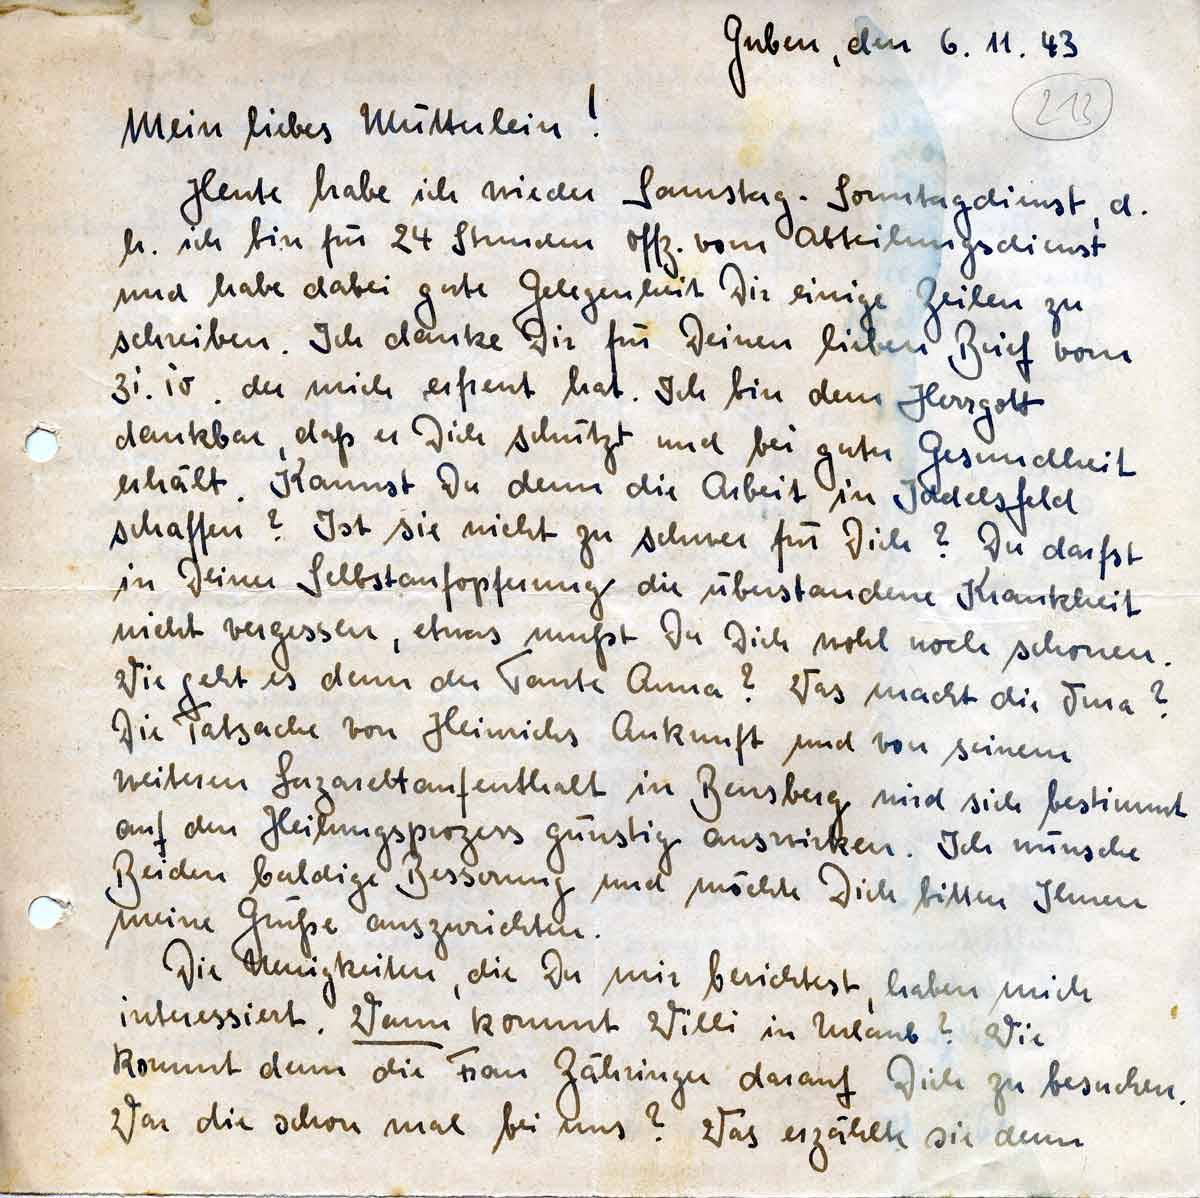 Guben, den 6. 11. 43
213
Mein liebes Mütterlein!
Heute habe ich wieder Samstag-Sonntagdienst, d.
h. ich bin für 24 Stunden Offz. vom Abteilungsdienst
und habe dabei gute Gelegenheit Dir einige Zeilen zu
schreiben. Ich danke Dir für Deinen lieben Brief vom
31.10. der mich erfreut hat. Ich bin dem Herrgott
dankbar, daß er Dich schützt und bei guter Gesundheit
erhält. Kannst Du denn die Arbeit in Iddelsfeld
schaffen? Ist sie nicht zu schwer für Dich? Du darfst
in Deiner Selbstaufopferung die überstandene Krankheit
nicht vergessen, etwas mußt Du Dich wohl noch schonen.
Wie geht es denn der Tante Anna? Was macht die Irma?
Die Tatsache von Heinrichs Ankunft und von seinem
weiteren Lazarettaufenthalt in Bensberg wird sich bestimmt
auf den Heilungsprozess günstig auswirken. Ich wünsche
Beiden baldige Besserung und möchte Dich bitten Ihnen
meine Grüße auszurichten.
Die Neuigkeiten, die Du mir berichtest, haben mich
interessiert. Wann kommt Willi in Urlaub? Wie
kommt denn die Frau Zähringer darauf Dich zu besuchen.
War die schon mal bei uns? Was erzählte sie denn